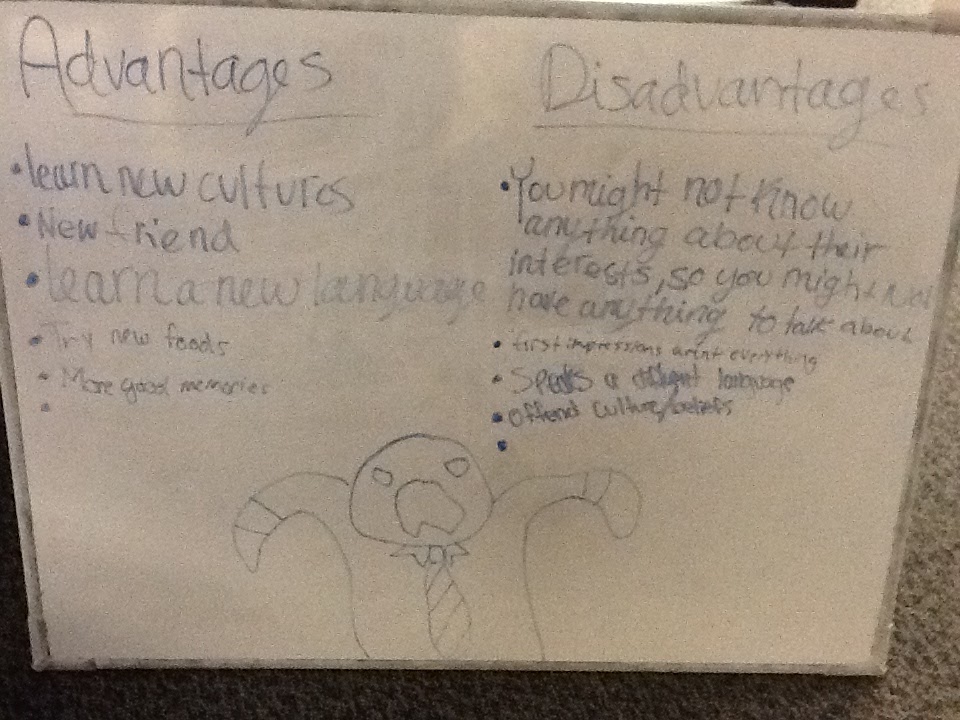 Advantages
• learn new cultures
• New friend
• Learn a new language
• Try new foods
• More good memories
•
Disadvantages
• You might not know
anything about their
interests, so you might not
have anything to talk about
• first impressions arn't everything
• Speaks a diffrent language
• Offend culture/beliefs
•